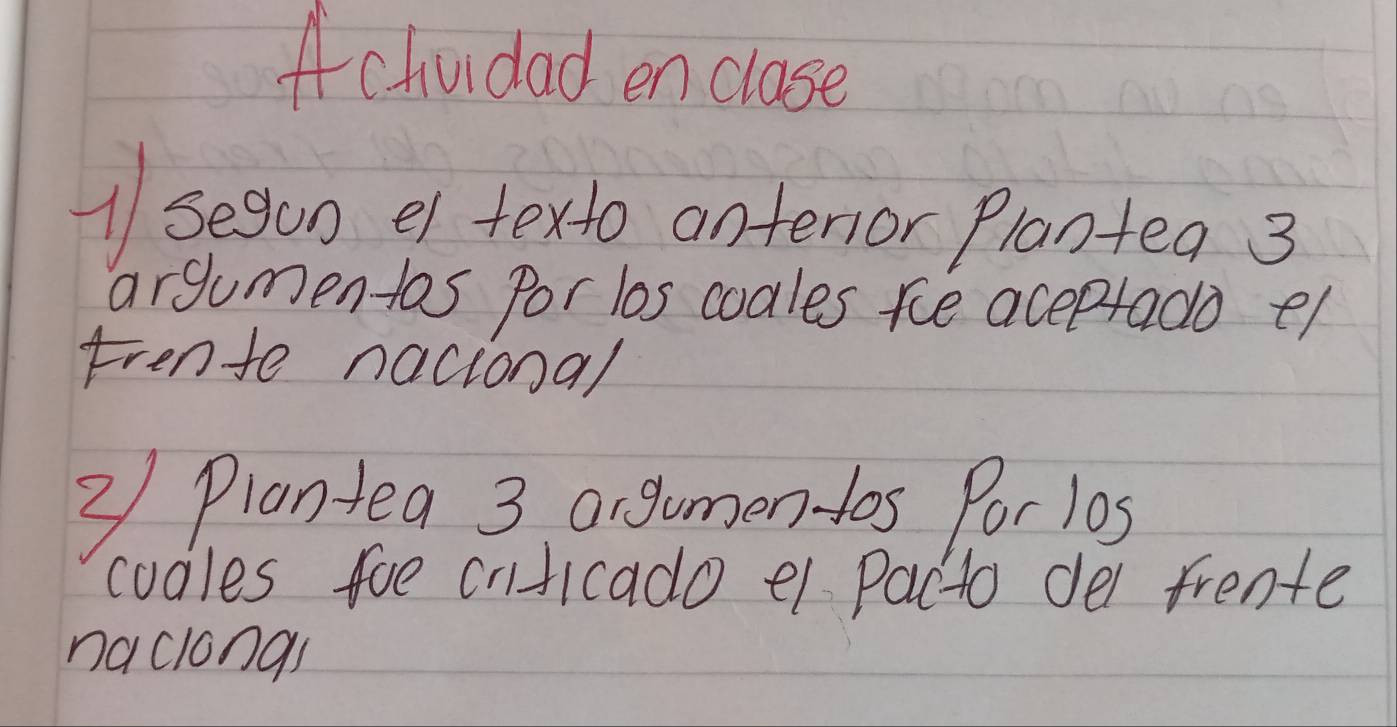 Actividad en clase
1) segun el texto anterior Plantea 3
argumentos Por los cuales fue aceptado el
frente nacional
2) Plantea 3 argumentos Por los
cuales fue criticado el Pacto del frente
nacional